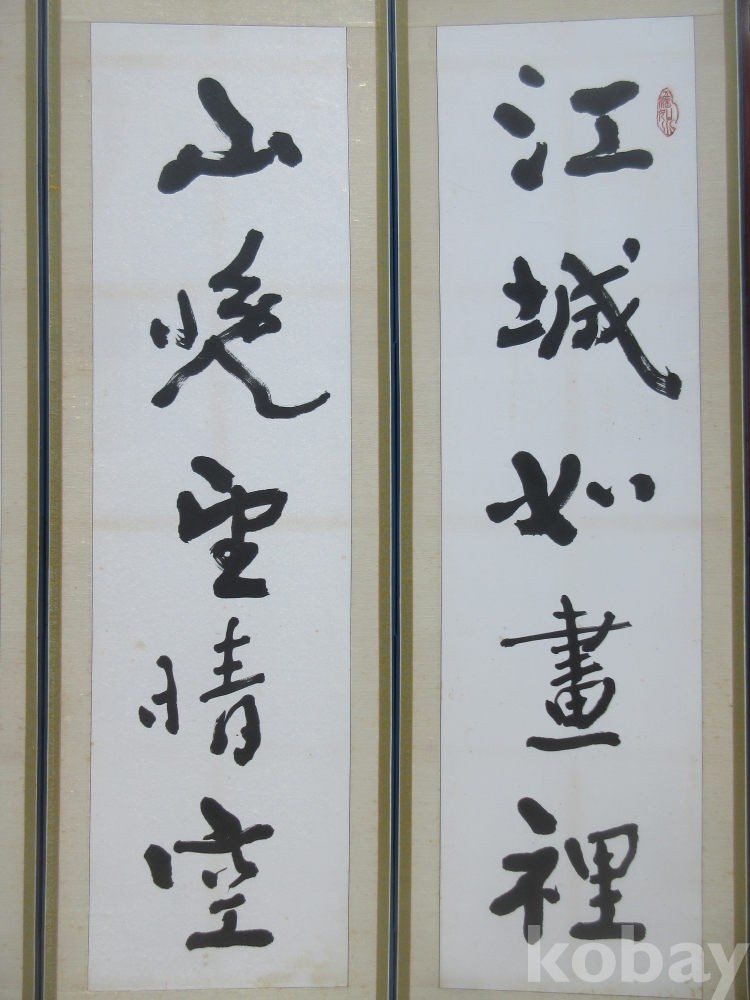 江城如畫裡
山曉望晴空
kobay